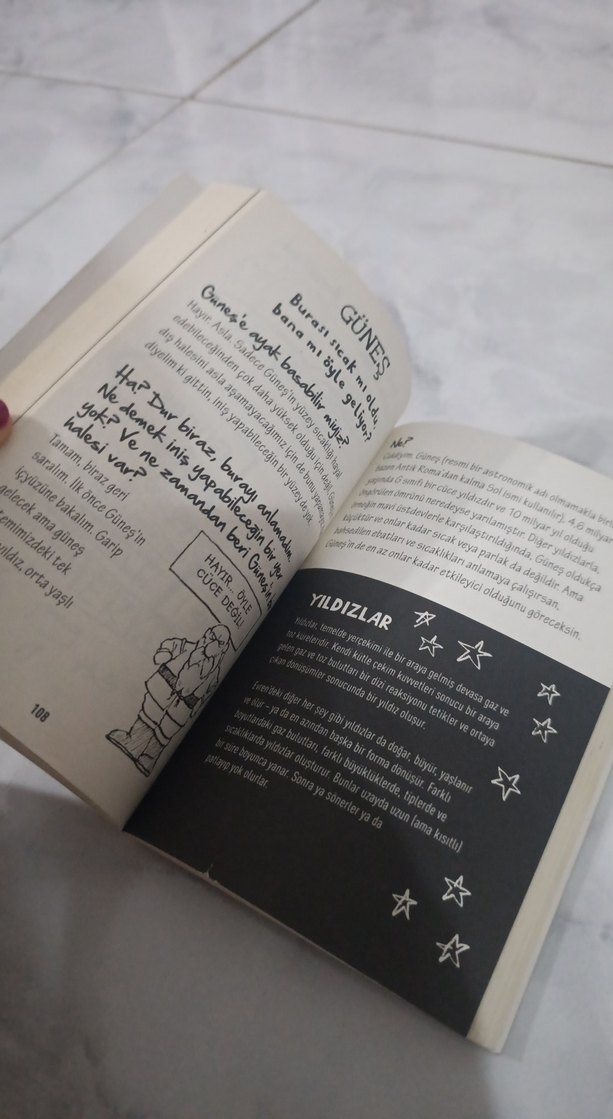 GÜNEŞ
Burası sıcak mı oldu,
bana mı öyle geliyor?
Güneş'e ayak basabilir miyiz?
Hayır. Asla. Sadece Güneş'in yüzey sıcaklığı hayal
edebileceğinden çok daha yüksek olduğu için değil, Güneş'in
dış halesini asla aşamayacağımız için de bunu yapamayız.
diyelim ki gittin, iniş yapabileceğin bir yüzey de yok.
Ha? Dur biraz, burayı anlamadım.
Ne demek iniş yapabileceğin bir yer
yok? Ve ne zamandan beri Güneş'in
halesi var?
Tamam, biraz geri
saralım. İlk önce Güneş'in
içyüzüne bakalım. Garip
gelecek ama güneş
sistemimizdeki tek
yıldız, orta yaşlı
HAYIR... ÖYLE
CÜCE DEĞİL!
108
Ne?
Ciddiyim. Güneş (resmi bir astronomik adı olmamakla
bazen Antik Roma'dan kalma Sol ismi kullanılır), 4,6 milyar
yaşında G sınıfı bir cüce yıldızdır ve 10 milyar yıl olduğu
öngörülen ömrünü neredeyse yarılamıştır. Diğer yıldızlarla,
örneğin mavi üstdevlerle karşılaştırıldığında, Güneş oldukça
küçüktür ve onlar kadar sıcak veya parlak da değildir. Ama
bahsedilen ebatları ve sıcaklıkları anlamaya çalışırsan,
Güneş'in de en az onlar kadar etkileyici olduğunu göreceksin.
YILDIZLAR
Yıldızlar, temelde yerçekimi ile bir araya gelmiş devasa gaz ve
toz küreleridir. Kendi kütle çekim kuvvetleri sonucu bir araya
gelen gaz ve toz bulutları bir dizi reaksiyonu tetikler ve ortaya
çıkan dönüşümler sonucunda bir yıldız oluşur.
Evren'deki diğer her şey gibi yıldızlar da doğar, büyür, yaşlanır
ve ölür – ya da en azından başka bir forma dönüşür. Farklı
boyutlardaki gaz bulutları, farklı büyüklüklerde, tiplerde ve
sıcaklıklarda yıldızlar oluşturur. Bunlar uzayda uzun (ama kısıtlı)
bir süre boyunca yanar. Sonra ya sönerler ya da
patlayıp yok olurlar.